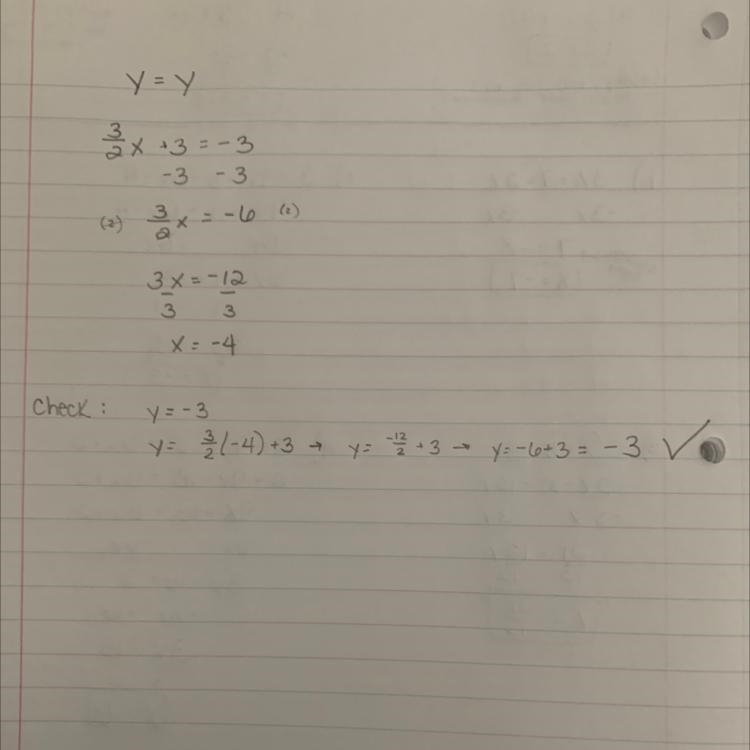 y = y
3/2 x + 3 = -3
-3 -3
(2) 3/2 x = -6 (2)
3x/3 = -12/3
x = -4
Check: y = -3
y = 3/2 (-4) + 3 → y = -12/2 + 3 → y = -6 + 3 = -3 ✓